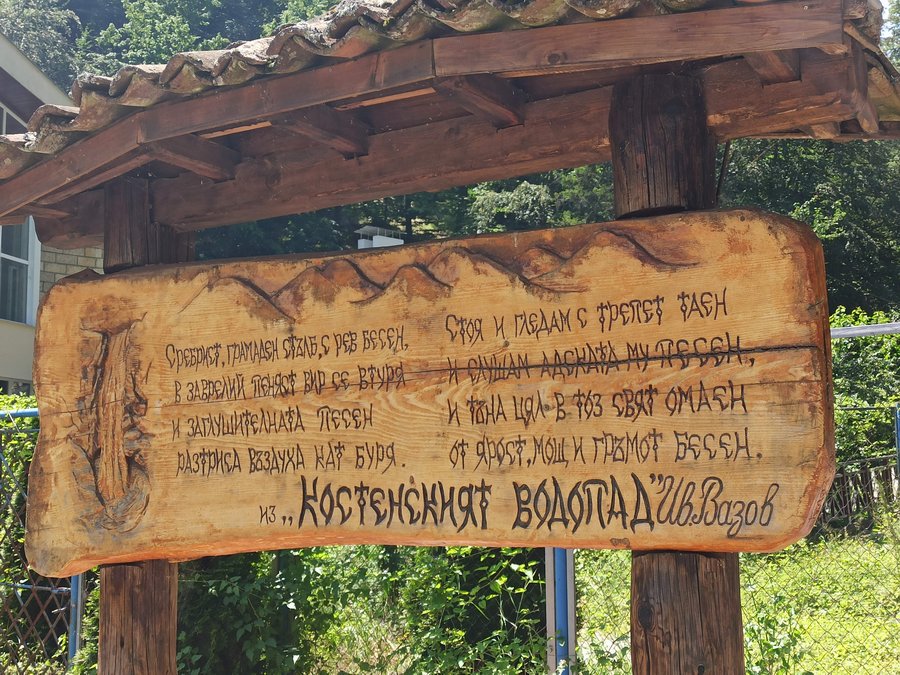 Сребрист, грамаден стълб, с рев бесен,
в заврелий пенят вир се втуря
и заглушителната песен
разтриса въздуха кат буря.
Стоя и гледам с трепет таен
и слушам адската му песен,
и тъна цял в тоз свят омаен
от ярост, мощ и гръмот бесен.
из „Костенският водопад" Ив. Вазов